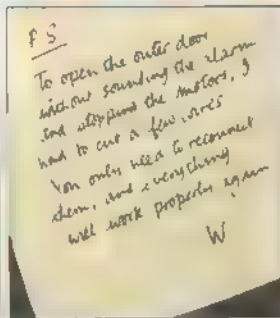 P S
To open the outer door
without sounding the alarm
and stopping the motors, I
had to cut a few wires
You only need to reconnect
them, and everything
will work properly again
W